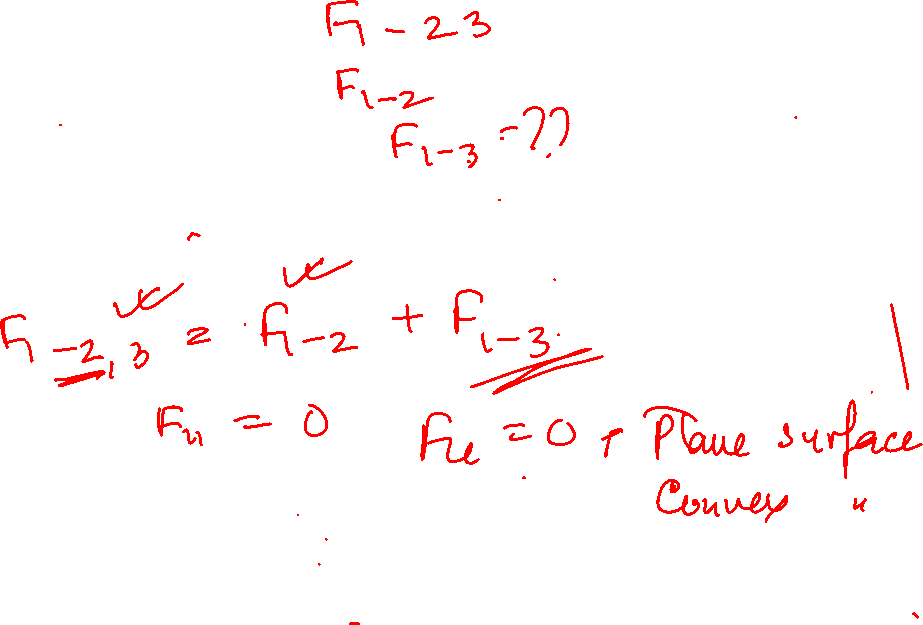 F1-23
F1-2
F1-3 = ??
F1-2,3 = F1-2 + F1-3
F11 = 0 F11 = 0, Plane surface
Convex "